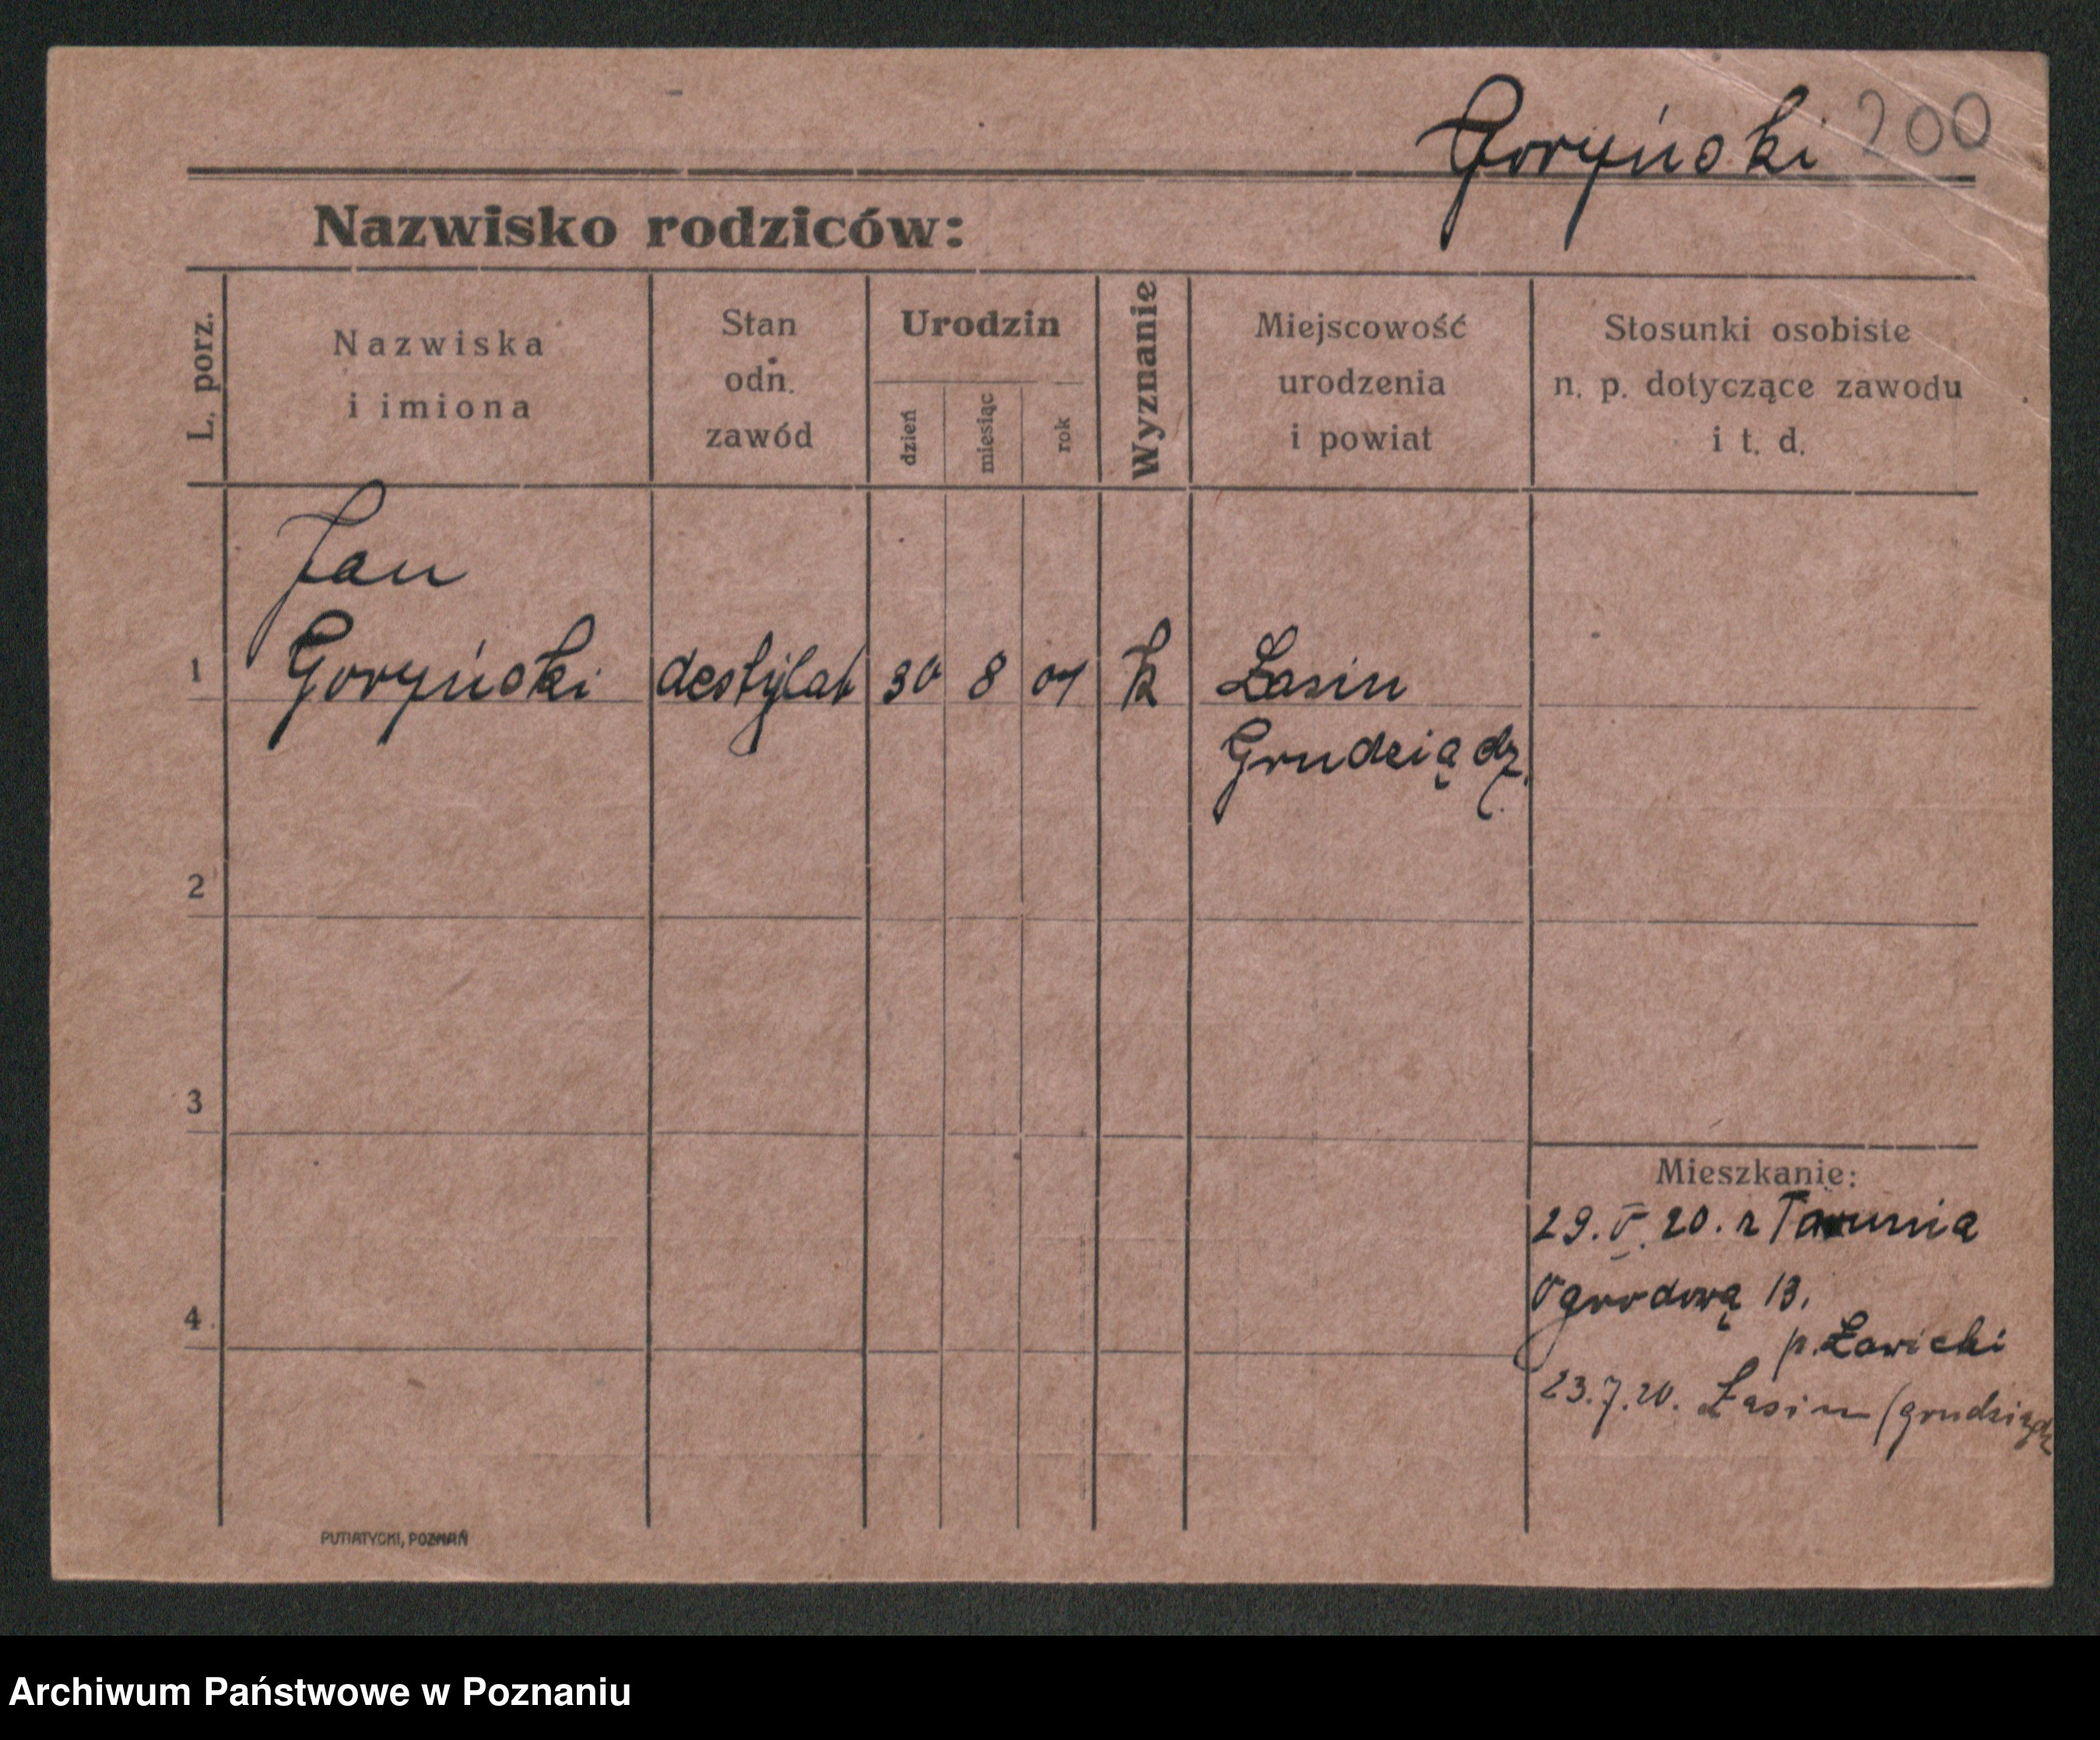 Goryński 200
Nazwisko rodziców:
L. porz.
Nazwiska
i imiona
Stan
odn.
zawód
Urodzin
dzień
miesiąc
rok
Wyznanie
Miejscowość
urodzenia
i powiat
Stosunki osobiste
n. p. dotyczące zawodu
i t. d.
Jan
1 Goryński destylat 30 8 01 k Łasin
Grudziądz.
2
3
4
Mieszkanie:
29. V. 20. z Torunia
Ogrodową 13.
p. Ławicki
23.7.20. Łasin (grudziądz
PUTIATYCKI, POZNAŃ
Archiwum Państwowe w Poznaniu